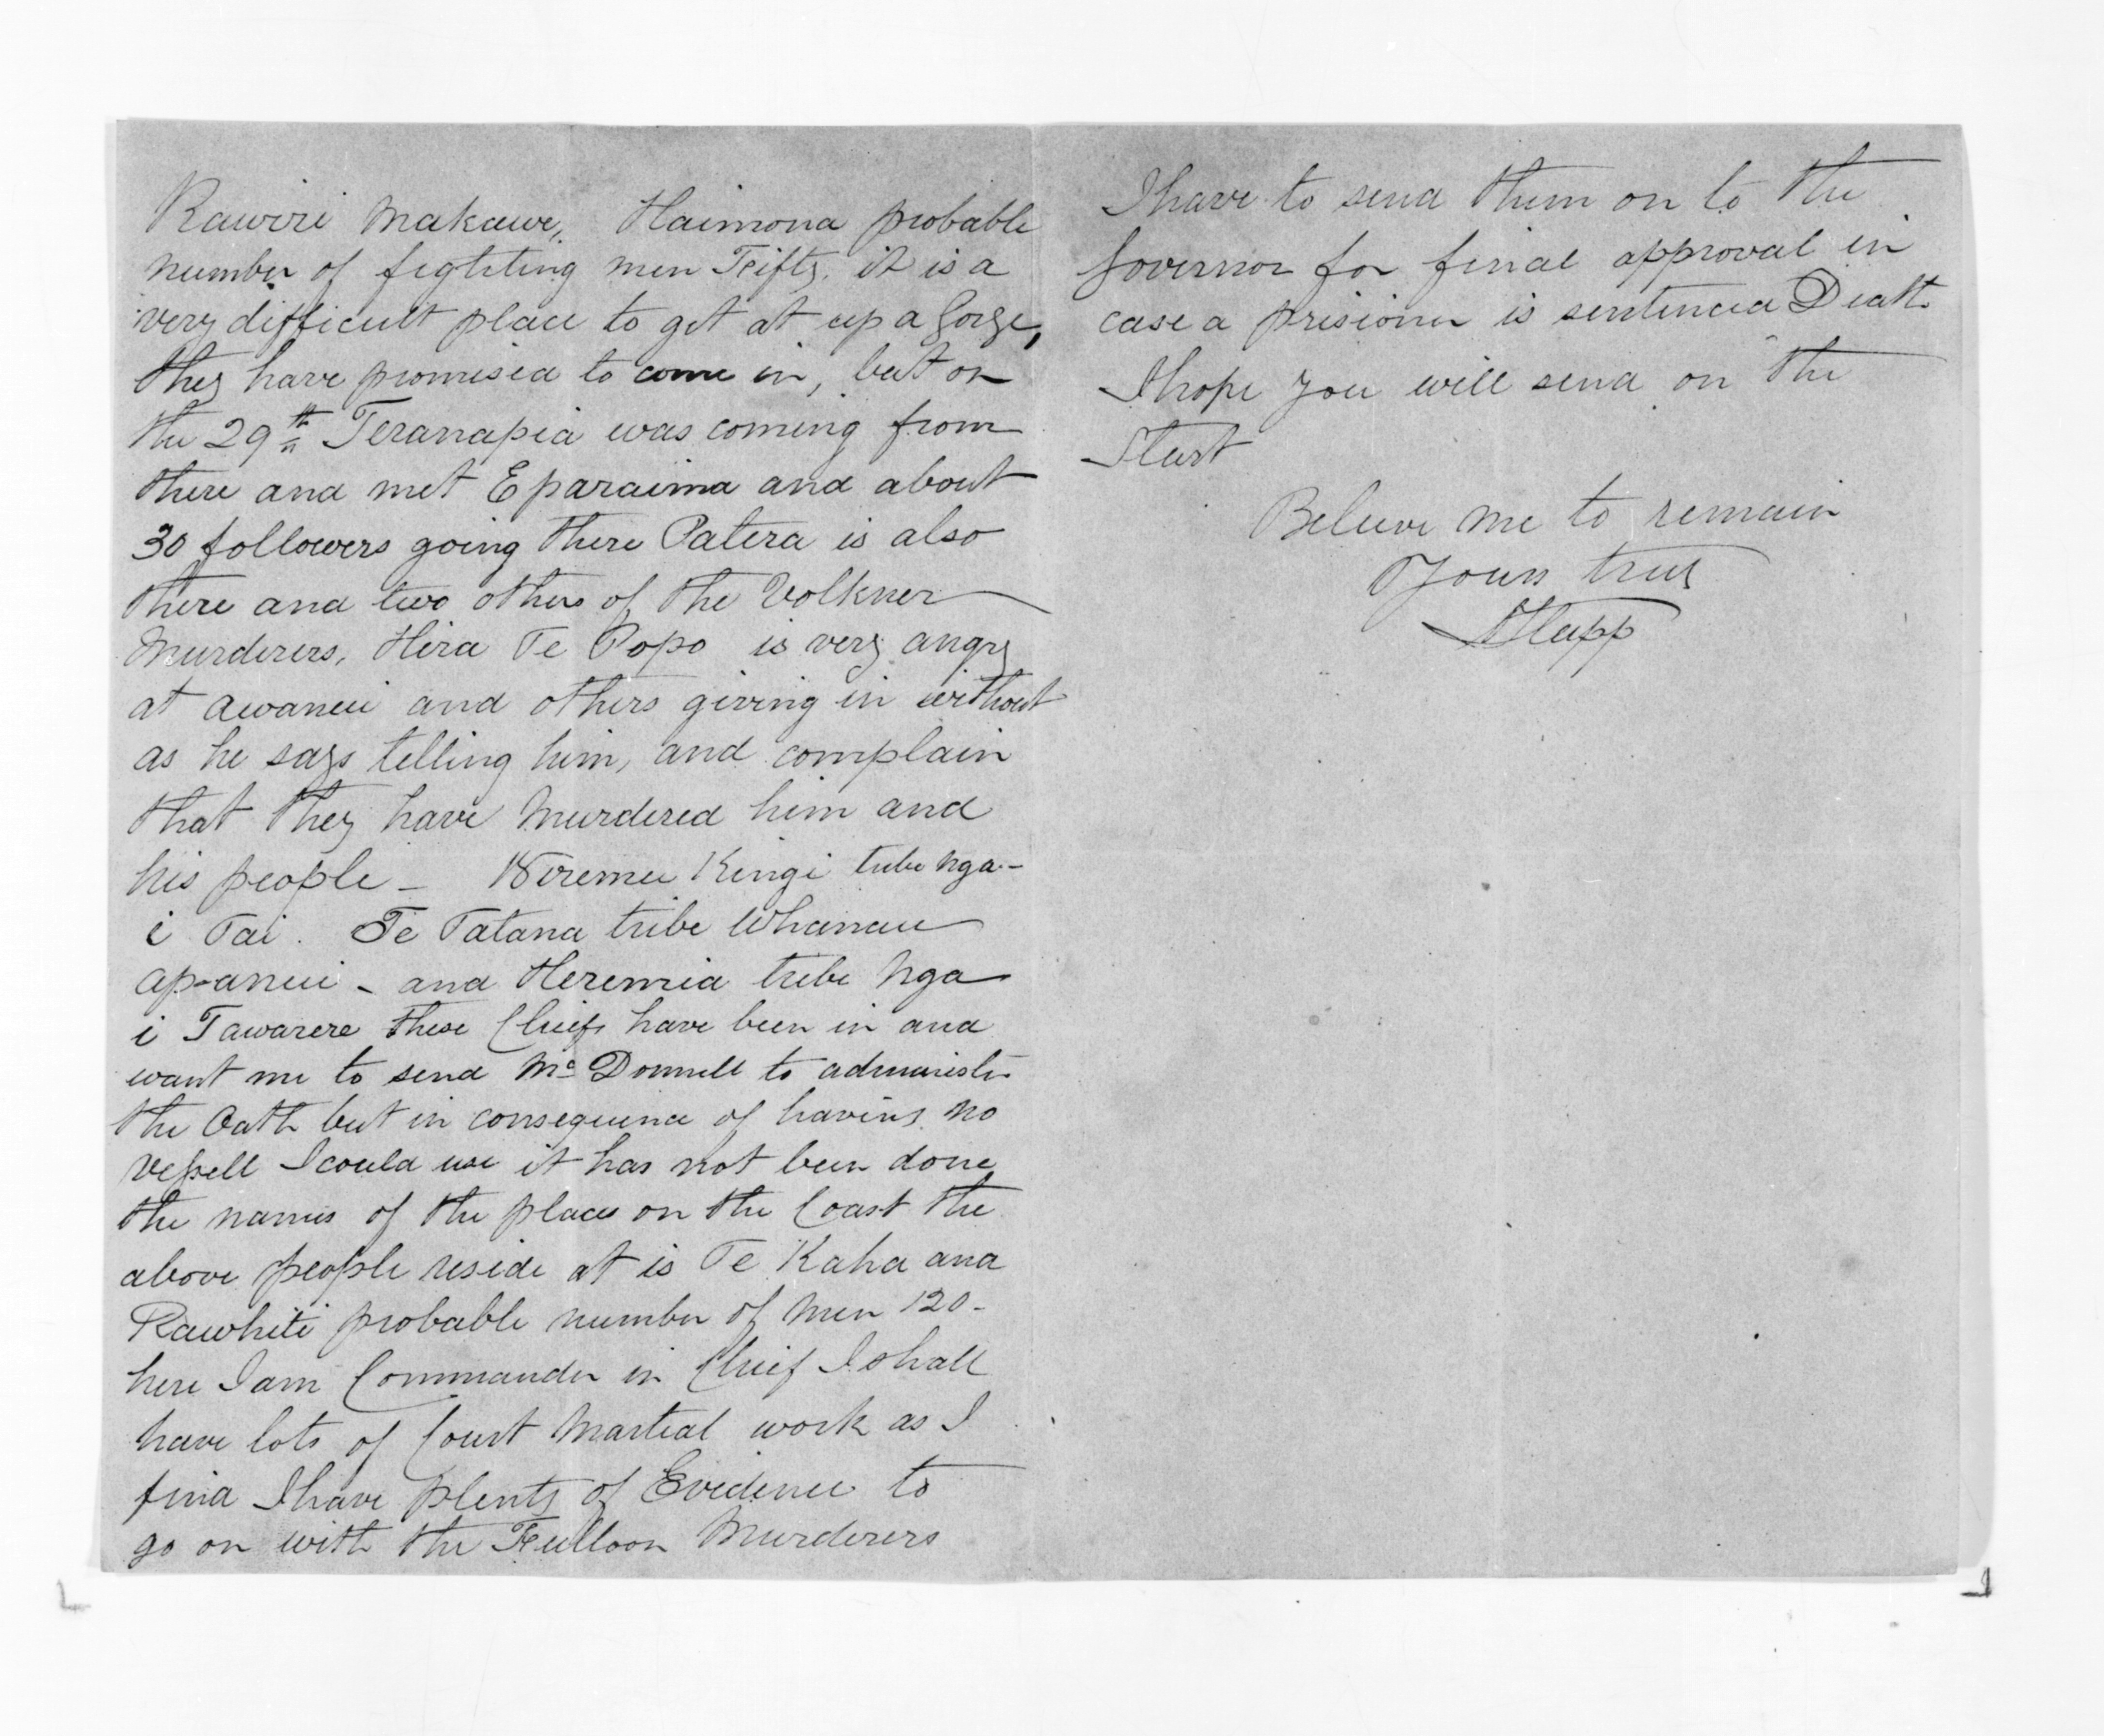 Rawiri Makawe, Haimona probable
number of fighting men Fifty. it is a
very difficult place to get at up a Gorge,
they have promised to come in, but on
the 29th Teranapia was coming from
there and met Eparaima and about
30 followers going there Patera is also
there and two others of the Volkner
Murderers, Hira Te Popo is very angry
at Awanui and others giving in without
as he says telling him, and complain
that they have murdered him and
his people - Wiremu Kingi tribe Nga-
i Tai. Te Tatana tribe Whanau
ap-anui - and Heremia tribe Nga
i Tawarere these Chiefs have been in and
want me to send McDonnell to administer
the Oath but in consequence of having no
vessell I could use it has not been done
the names of the places on the Coast the
above people reside at is Te Kaha and
Rawhiti probable number of men 120-
here I am Commander in Chief I shall
have lots of Court Martial work as I
find I have plenty of Evidence to
go on with the Fulloon Murderers
I have to send them on to the
Governor for final approval in
case a prisioner is sentenced Death
I hope you will send on the
Sturt
Believe me to remain
Yours truly
Stapp